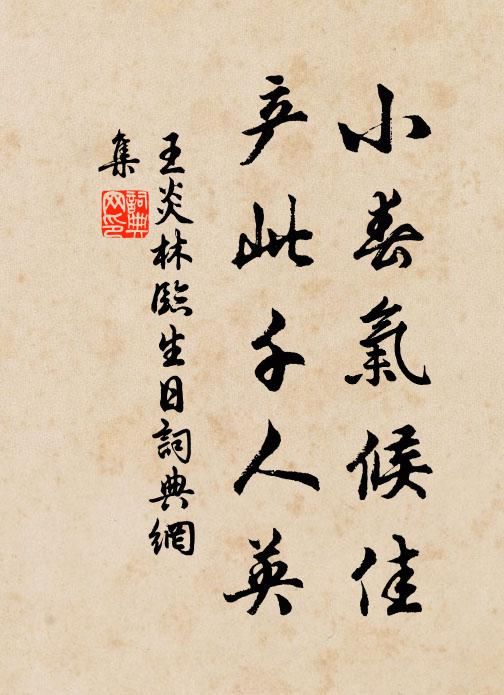 小春氣候佳
产此千人英
王炎林臨生日詞典網
集
詞典
网印